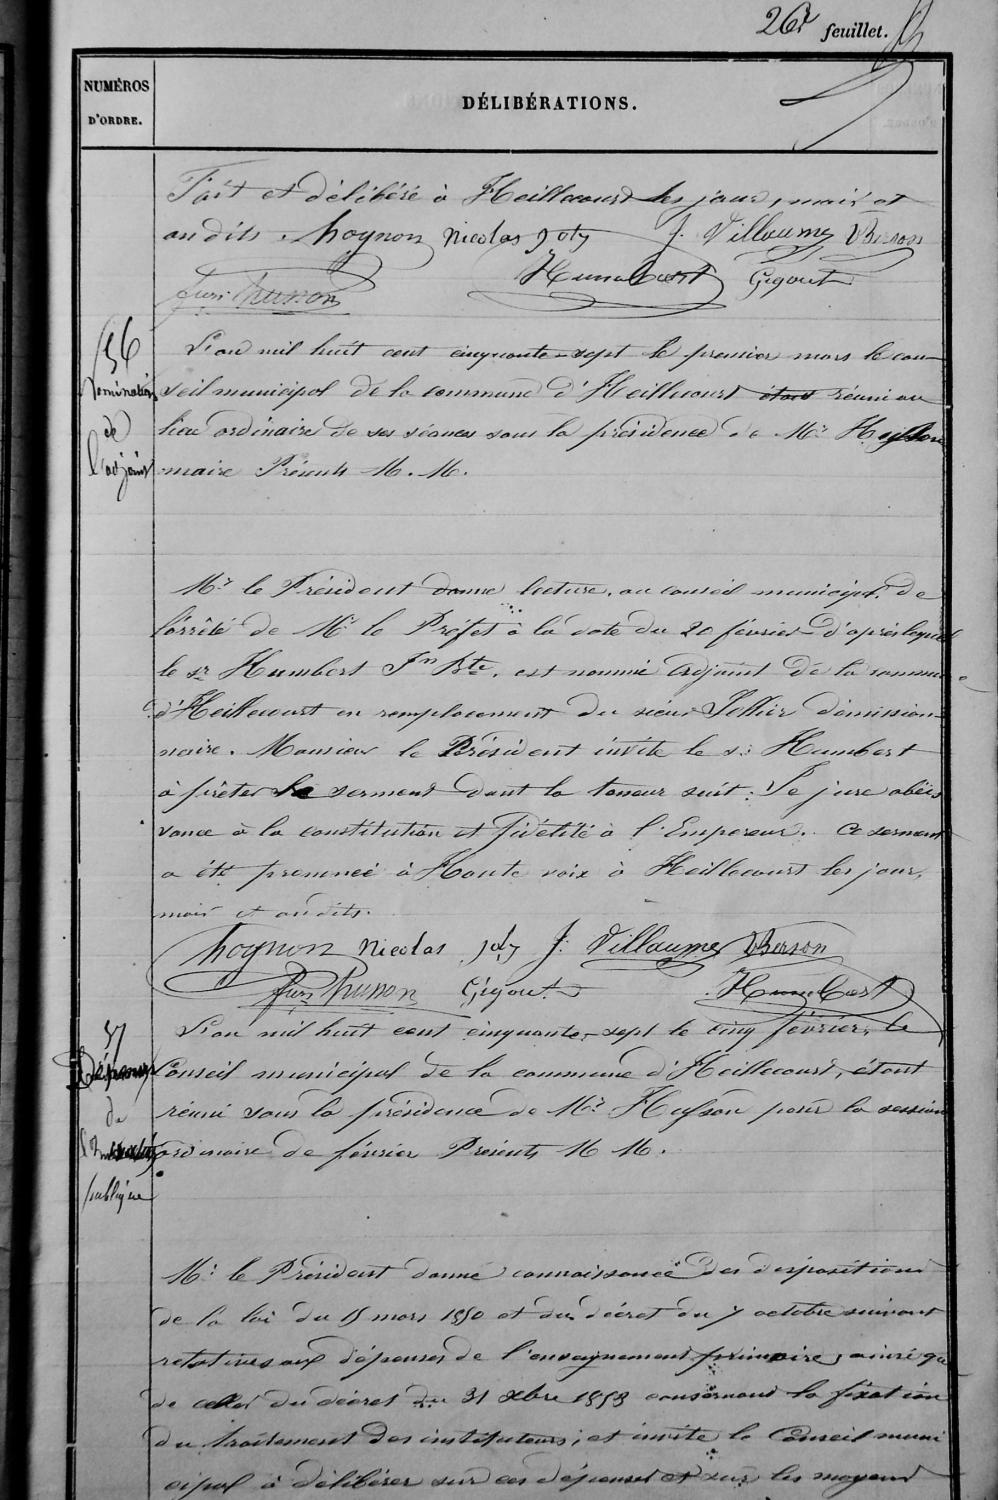 26e feuillet.
NUMÉROS
D'ORDRE.
DÉLIBÉRATIONS.
Fait et délibéré à Heillecourt les jour, mois et
an dits. Thognon Nicolas Joly J. Villaume VBerson
Humbert Gigout
husson
36
Nomination
de
l'adjoint
L'an mil huit cent cinquante-sept le premier mars le con-
seil municipal de la commune d'Heillecourt étant réuni au
lieu ordinaire de ses séances sous la présidence de Mr
maire Présents M. M.
Mr le Président donne lecture, au conseil municipal, de
l'arrêté de Mr le Préfet à la date du 20 février d'après lequel
le sr Humbert Jn Bte, est nommé adjoint de la commune
d'Heillecourt en remplacement du sieur démission-
naire. Monsieur le Président invite le sr Humbert
à prêter le serment dont la teneur suit: Je jure obéis
sance à la constitution et fidélité à l'Empereur. Ce serment
a été prononcé à Haute voix à Heillecourt les jour,
mois et an dits.
Thognon Nicolas Joly J. Villaume VBerson
husson Gigout Humbert
37
Dépenses
de
publique
L'an mil huit cent cinquante-sept le cinq février, le
Conseil municipal de la commune d'Heillecourt, étant
réuni sous la présidence de Mr Husson pour la session
ordinaire de février Présents M M.
Mr le Président donne connaissance des dispositions
de la loi du 15 mars 1850 et du décret du 7 octobre suivant
relatives aux dépenses de l'enseignement primaire, ainsi que
de celles du décret du 31 xbre 1853 concernant la fixation
du traitement des instituteurs; et invite le Conseil muni
cipal à délibérer sur ces dépenses et sur les moyens